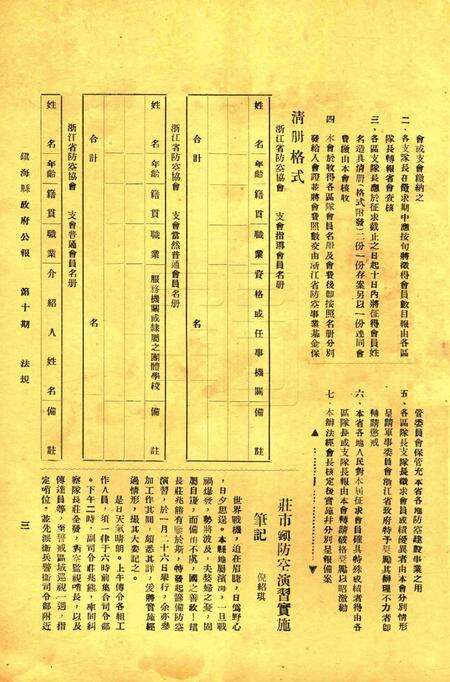 會或支會繳納之
二、各支隊長在徵求期中應按旬將徵得會員數目報由各區
隊長轉報省會查核
三、各區支隊長應於征求截止之日起十日內將征得會員姓
名造具清册（格式附發）二份一份存案另以一份連同會
費繳由本會核收
四 本會於收得各區隊會員名册及會費後即按照名册分別
發給入會證並將會費照數交由浙江省防空事業基金保
清册格式
浙江省防空協會 支會指導會員名册
姓名 年齡 籍貫 職業 資格或任事機關 備註
合計 名
浙江省防空協會 支會當然普通會員名册
姓名 年齡 籍貫 職業 服務機關或隸屬之團體學校 備註
合計 名
浙江省防空協會 支會普通會員名册
姓名 年齡 籍貫 職業 介紹人 姓名 備註
鎮海縣政府公報 第十期 法規
管委員會保管充本省各地防空建設事業之用
五、各區隊長支隊長徵求會員成績優異者由本會分別情形
呈請軍事委員會浙江省政府特予獎勵其辦理不力者即
轉請懲戒
六、本省各地人民對本屆征求會員確具特殊成績者得由各
區隊長或支隊長報由本會轉請破格獎勵以昭激勸
七、本辦法經會長核定後實施并分別呈報備案
莊市鎮防空演習實施
筆記
倪紹琪
世界戰機，迫在眉睫，日寇野心
，日夕思逞。本縣地屬濱海，一旦戰
禍爆發，勢將波及，夫嫠婦之憂，固
屬自擾，而備而不虞，國之善政！
長莊兆熊有鑒於斯，特發起警備防空
演習，於一月二十六日舉行，余亦參
加工作其間，頗悉其詳，爰將實施經
過情形，撮其大要記之。
是日天氣晴朗。上午傳令各組工
作人員，須一律于六時前集合司令部
。下午二時，副司令莊兆熊，率同糾
察隊長莊全發，對空監視哨長，以及
傳達員等，至警戒區域巡視一過，指
定哨位，並先派衛兵警衛司令部附近
三